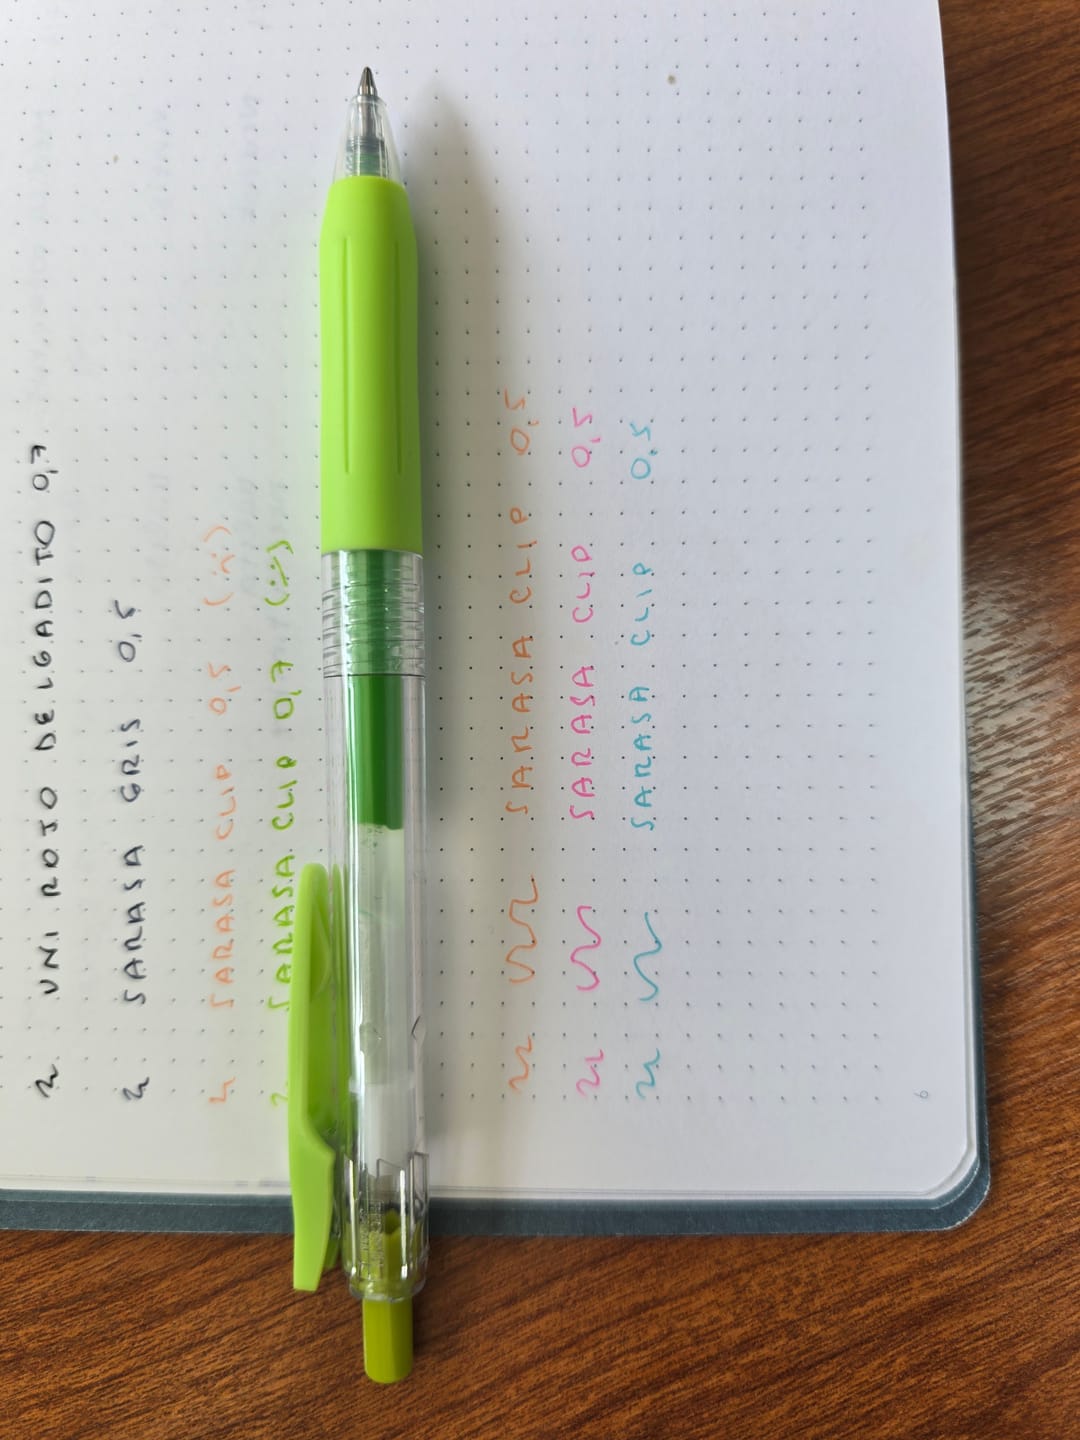 UNI ROJO DELGADITO 0,7
SARASA GRIS 0,5
SARASA CLIP 0,5 (:~)
SARASA CLIP 0,7 (:~)
SARASA CLIP 0,5
SARASA CLIP 0,5
SARASA CLIP 0,5
6